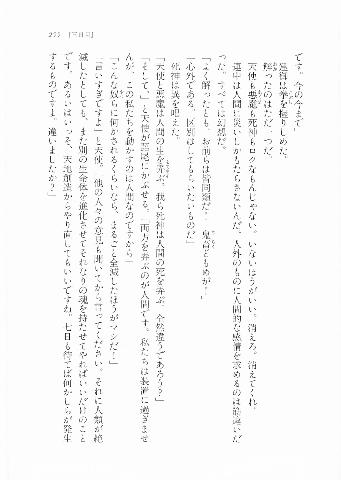 255 [五日目]
です。今の今まで」
是御は拳を握りしめた。
解ったのはただ一つだ。
天使も悪魔も死神もロクなもんじゃない。いないほうがいい。消えろ。消えてくれ。
連中は人間に災いしかもたらさないんだ。人外のものに人間的な感情を求めるのは筋違いだ
った。すべては幻想だ。
「よく解ったとも。お前らは皆同類だ！　鬼畜どもめが！」
「心外である。区別はしてもらいたいものだ」
死神は異を唱えた。
「天使と悪魔は人間の生を弄ぶ。我ら死神は人間の死を弄ぶ。全然違うであろう？」
「そして、」と天使が語尾にかぶせる。「両方を弄ぶのが人間です。私たちは装置に過ぎませ
んが、この私たちを動かすのは人間なのですから」
「こんな奴らに何かされるくらいなら、まるごと全滅したほうがマシだ！」
「言いすぎですよ」と天使。「他の人々の意見も聞いてから言ってください。それに人類が絶
滅したとしても、また別の生命体を進化させてそれなりの魂を持たせてやればいいだけのこと
です。あるいはいっそ、天地創造からやり直してもいいですね。七日も待てば何かしらが発生
するものですよ。違いましたか？」